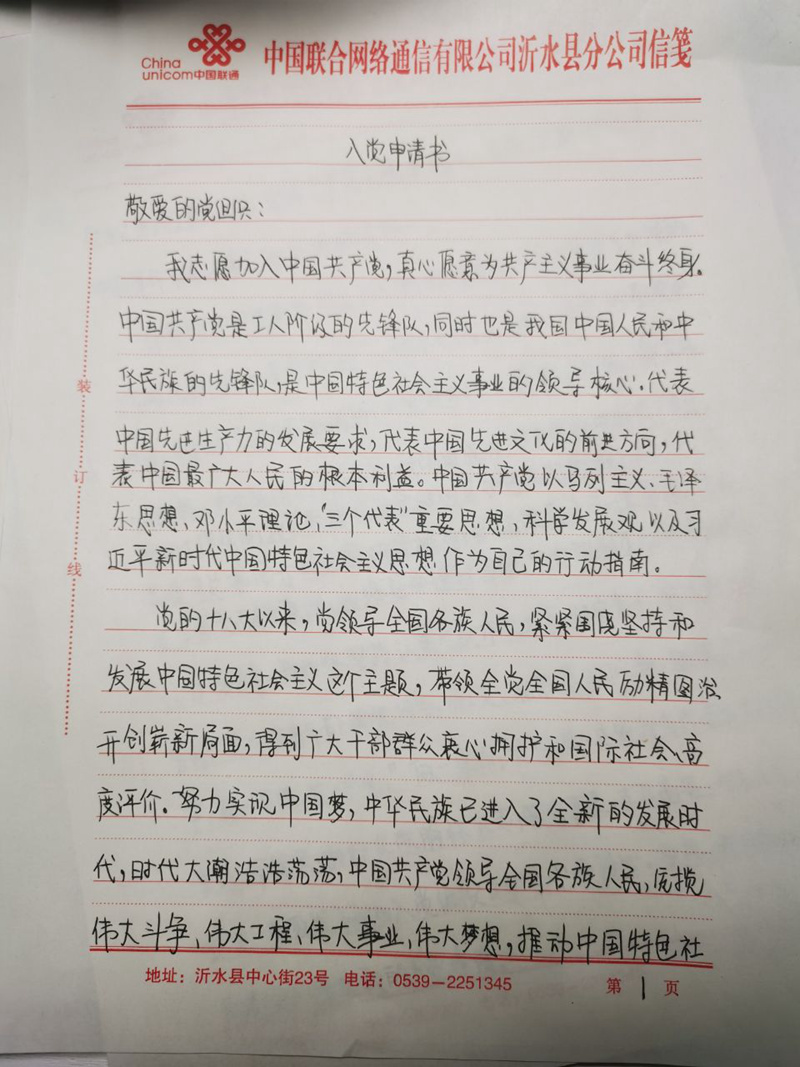 China
unicom中国联通
中国联合网络通信有限公司沂水县分公司信笺
入党申请书
敬爱的党组织：
我志愿加入中国共产党，真心愿意为共产主义事业奋斗终身。
中国共产党是工人阶级的先锋队，同时也是我国中国人民和中
华民族的先锋队，是中国特色社会主义事业的领导核心。代表
中国先进生产力的发展要求，代表中国先进文化的前进方向，代
表中国最广大人民的根本利益。中国共产党以马列主义、毛泽
东思想、邓小平理论，“三个代表”重要思想，科学发展观以及习
近平新时代中国特色社会主义思想作为自己的行动指南。
党的十八大以来，党领导全国各族人民，紧紧围绕坚持和
发展中国特色社会主义这个主题，带领全党全国人民励精图治
开创崭新局面，得到广大干部群众衷心拥护和国际社会、高
度评价。努力实现中国梦，中华民族已进入了全新的发展时
代，时代大潮浩浩荡荡，中国共产党领导全国各族人民，统揽
伟大斗争、伟大工程、伟大事业、伟大梦想，推动中国特色社
装
订
线
地址：沂水县中心街23号 电话：0539－2251345
第 1 页